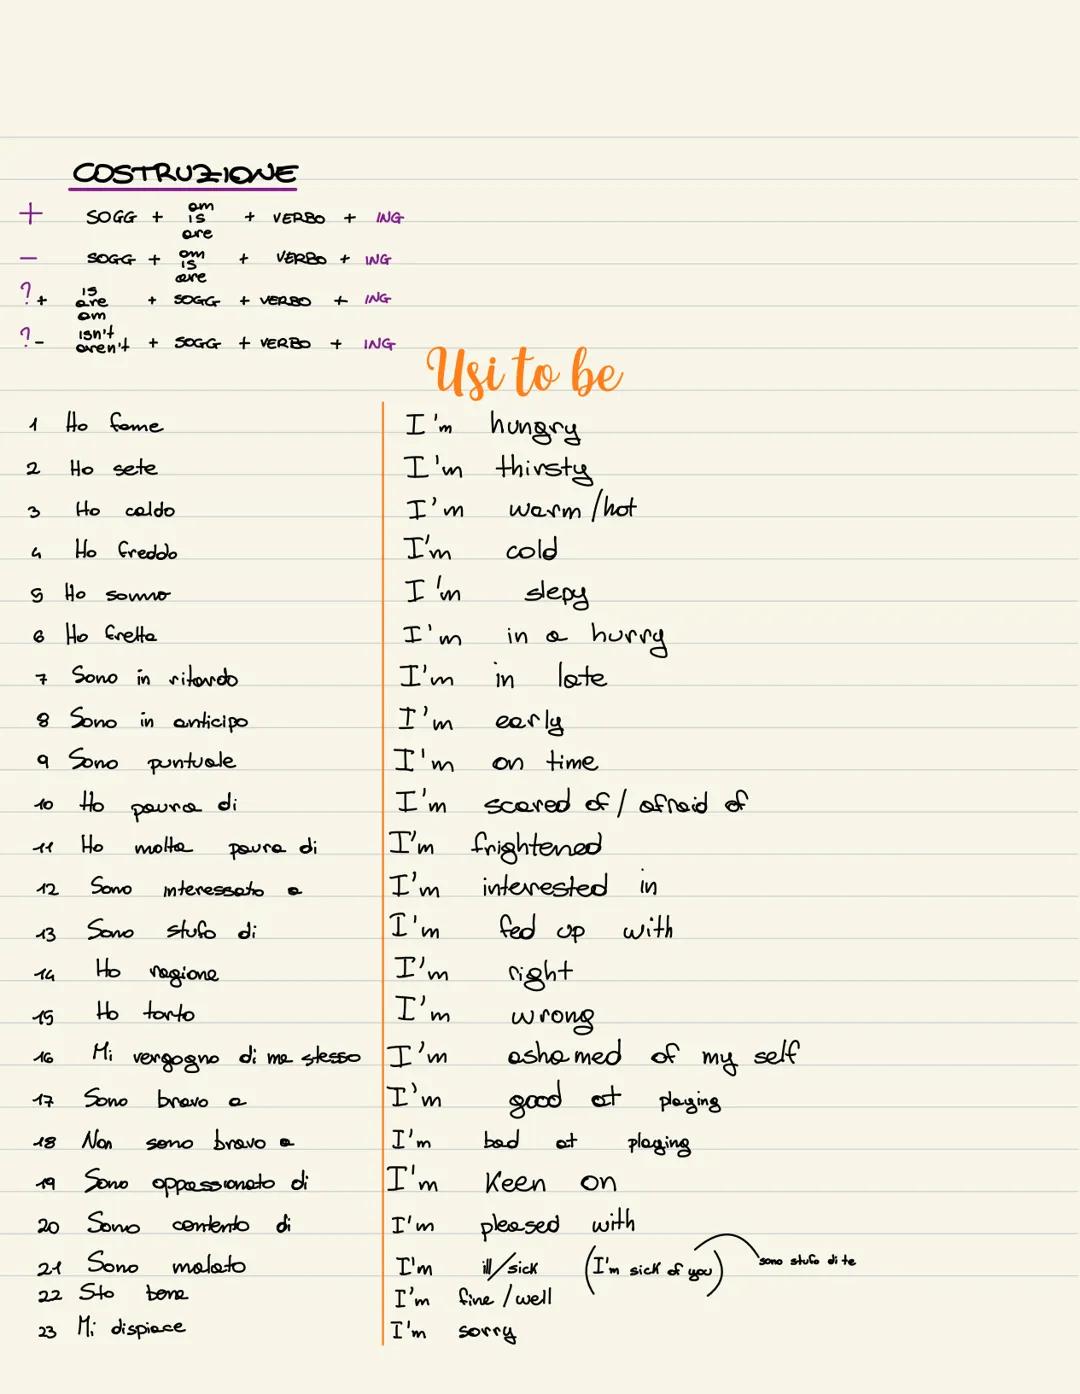 COSTRUZIONE
+ SOGG + am is are + VERBO + ING
- SOGG + am is are + VERBO + ING
?+ is are am + SOGG + VERBO + ING
?- isn't aren't + SOGG + VERBO + ING
Usi to be
1 Ho fame I'm hungry
2 Ho sete I'm thirsty
3 Ho caldo I'm warm/hot
4 Ho freddo I'm cold
5 Ho sonno I'm slepy
6 Ho fretta I'm in a hurry
7 Sono in ritardo I'm in late
8 Sono in anticipo I'm early
9 Sono puntuale I'm on time
10 Ho paura di I'm scared of / afraid of
11 Ho molta paura di I'm frightened
12 Sono interessato a I'm interested in
13 Sono stufo di I'm fed up with
14 Ho ragione I'm right
15 Ho torto I'm wrong
16 Mi vergogno di me stesso I'm ashamed of my self
17 Sono bravo a I'm good at playing
18 Non sono bravo a I'm bad at playing
19 Sono appassionato di I'm Keen on
20 Sono contento di I'm pleased with
21 Sono malato I'm ill/sick (I'm sick of you) sono stufo di te
22 Sto bene I'm fine / well
23 Mi dispiace I'm sorry